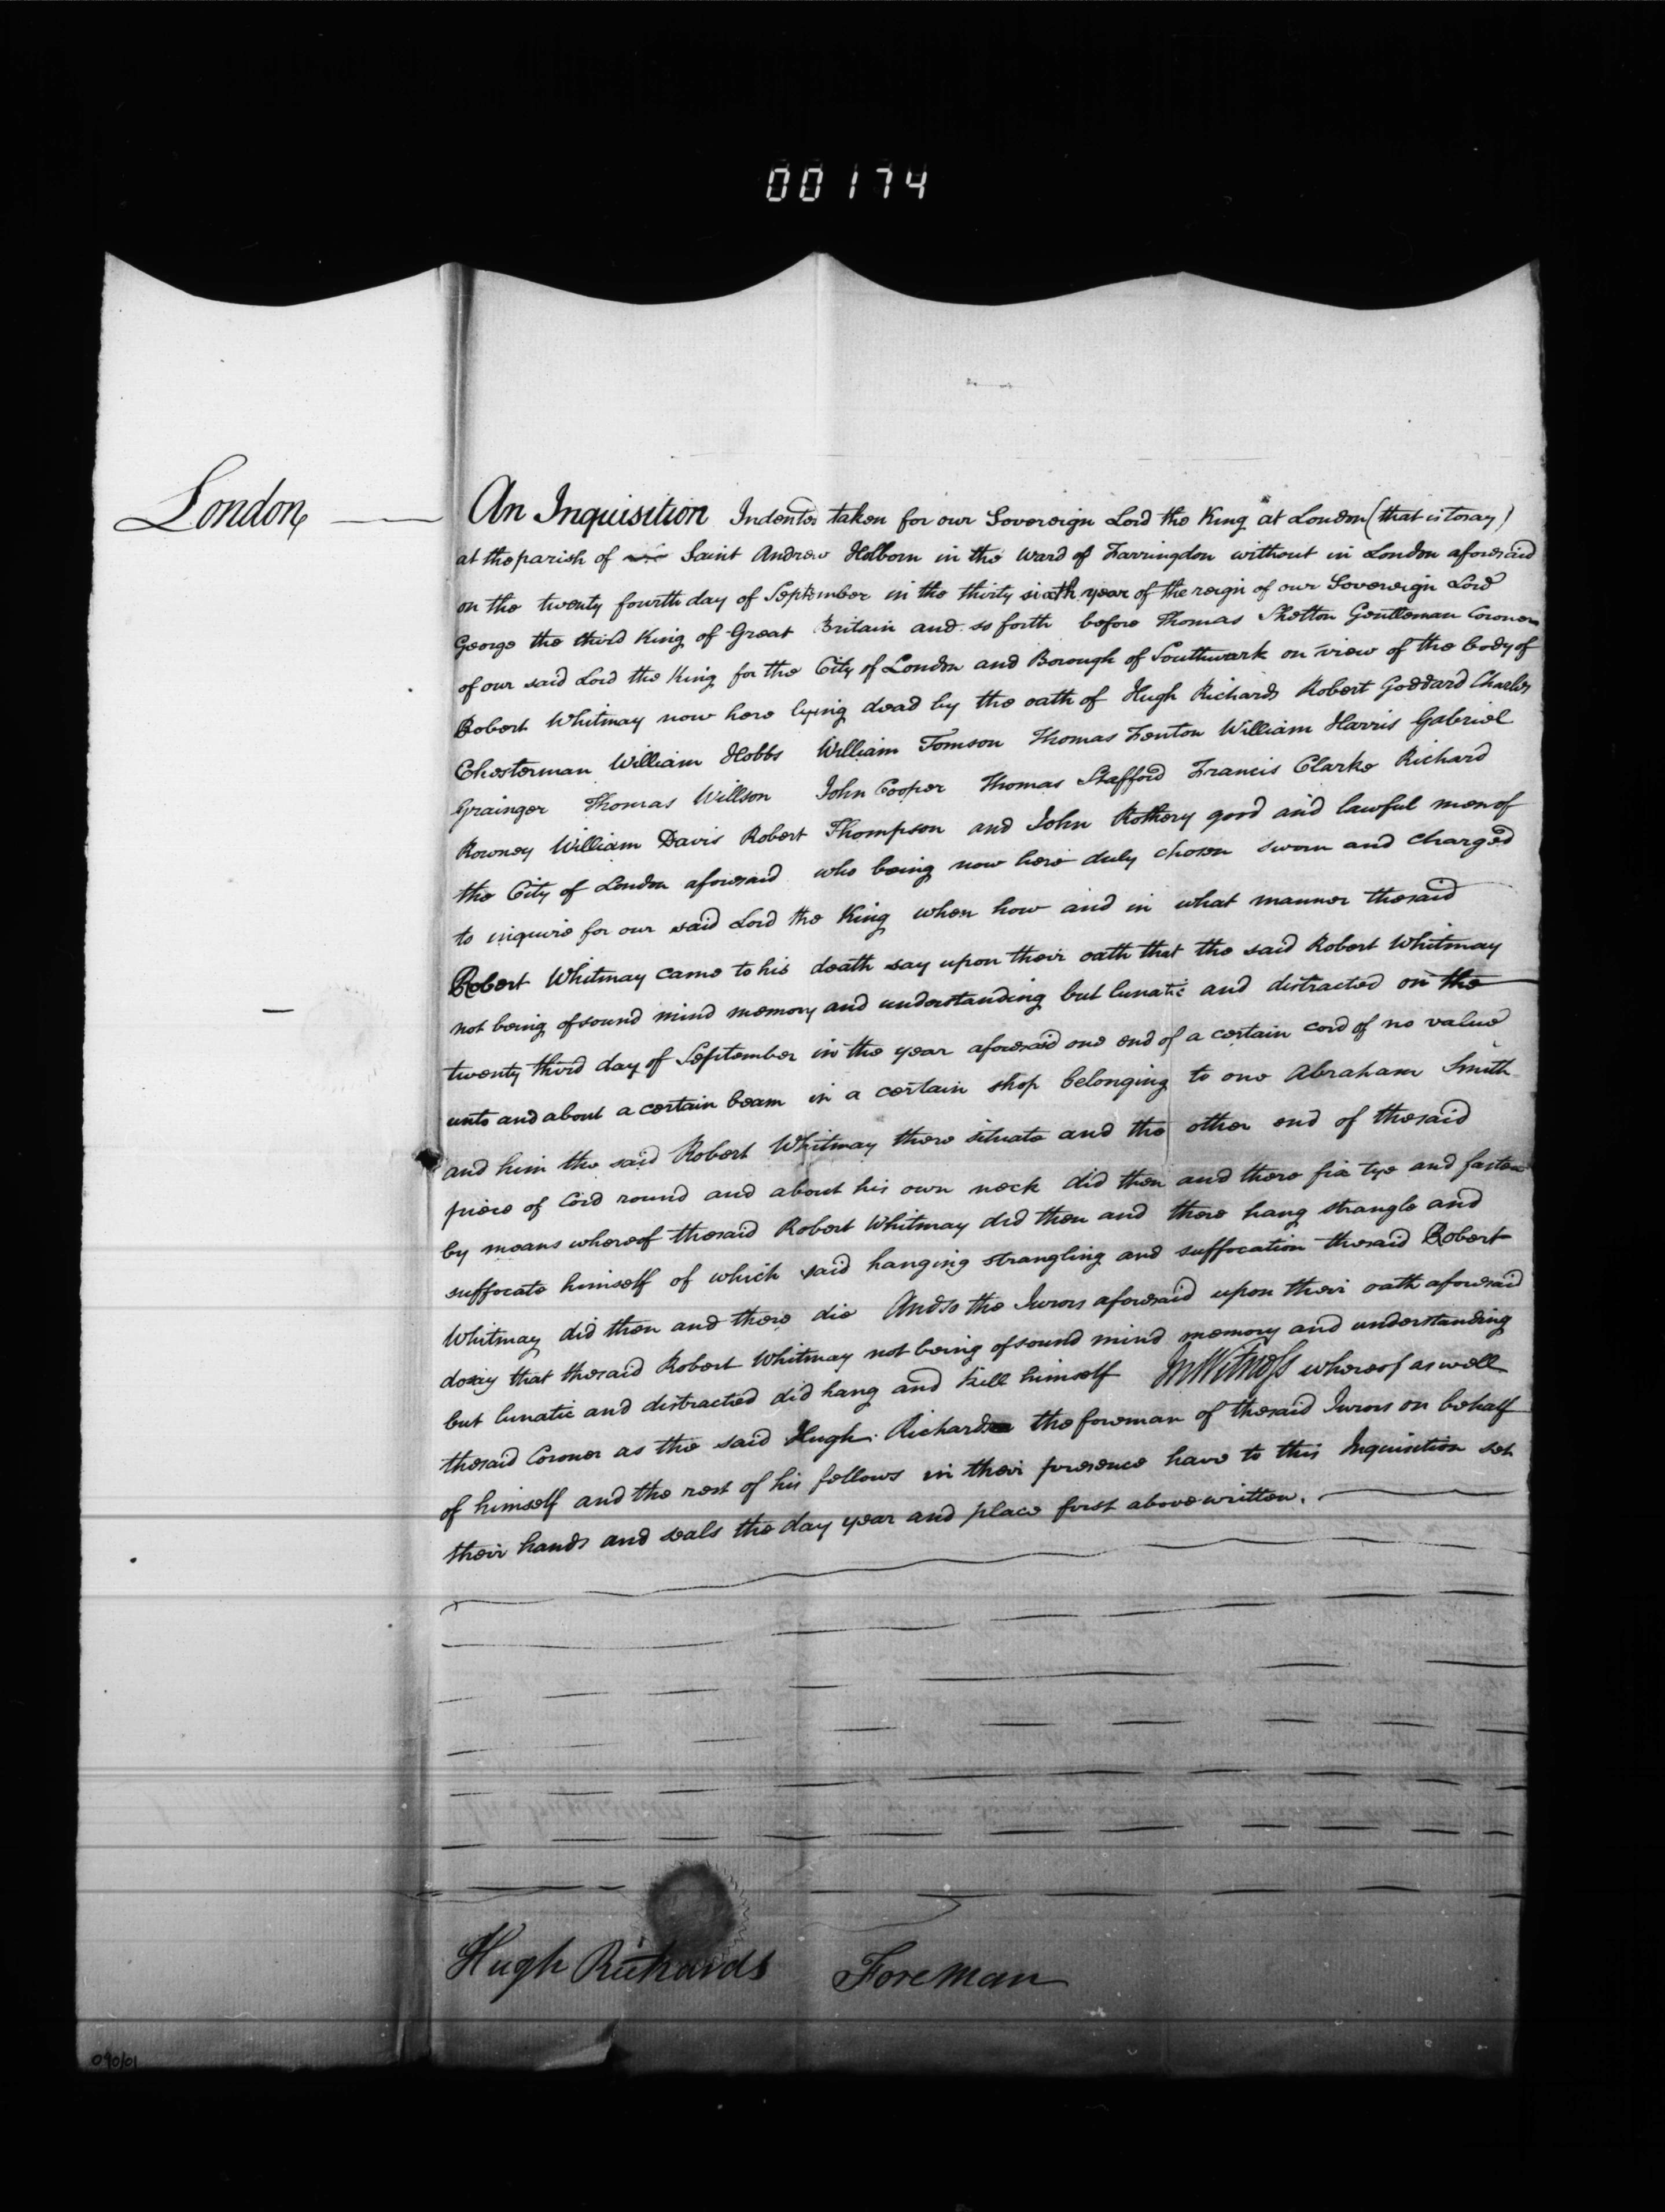 00174
London An Inquisition Indented taken for our Sovereign Lord the King at London (that is to say)
at the parish of Saint Andrew Holborn in the Ward of Farringdon without in London aforesaid
on the twenty fourth day of September in the thirty sixth year of the reign of our Sovereign Lord
George the third King of Great Britain and so forth before Thomas Shelton Gentleman Coroner
of our said Lord the King for the City of London and Borough of Southwark on view of the body of
Robert Whitmay now here lying dead by the oath of Hugh Richards Robert Goddard Charles
Chesterman William Hobbs William Tomson Thomas Fenton William Harris Gabriel
Grainger Thomas Willson John Cooper Thomas Stafford Francis Clarke Richard
Rowney William Davis Robert Thompson and John Rothery good and lawful men of
the City of London aforesaid who being now here duly chosen sworn and charged
to inquire for our said Lord the King when how and in what manner the said
Robert Whitmay came to his death say upon their oath that the said Robert Whitmay
not being of sound mind memory and understanding but lunatic and distracted on the
twenty third day of September in the year aforesaid one end of a certain cord of no value
unto and about a certain beam in a certain shop belonging to one Abraham Smith
and him the said Robert Whitmay there situate and the other end of the said
piece of Cord round and about his own neck did then and there fix tye and fasten
by means whereof the said Robert Whitmay did then and there hang strangle and
suffocate himself of which said hanging strangling and suffocation the said Robert
Whitmay did then and there die And so the Jurors aforesaid upon their oath aforesaid
do say that the said Robert Whitmay not being of sound mind memory and understanding
but lunatic and distracted did hang and kill himself In Witness whereof as well
the said Coroner as the said Hugh Richards the foreman of the said Jurors on behalf
of himself and the rest of his fellows in their presence have to this Inquisition set
their hands and seals the day year and place first above written.
Hugh Richards Foreman
090/01